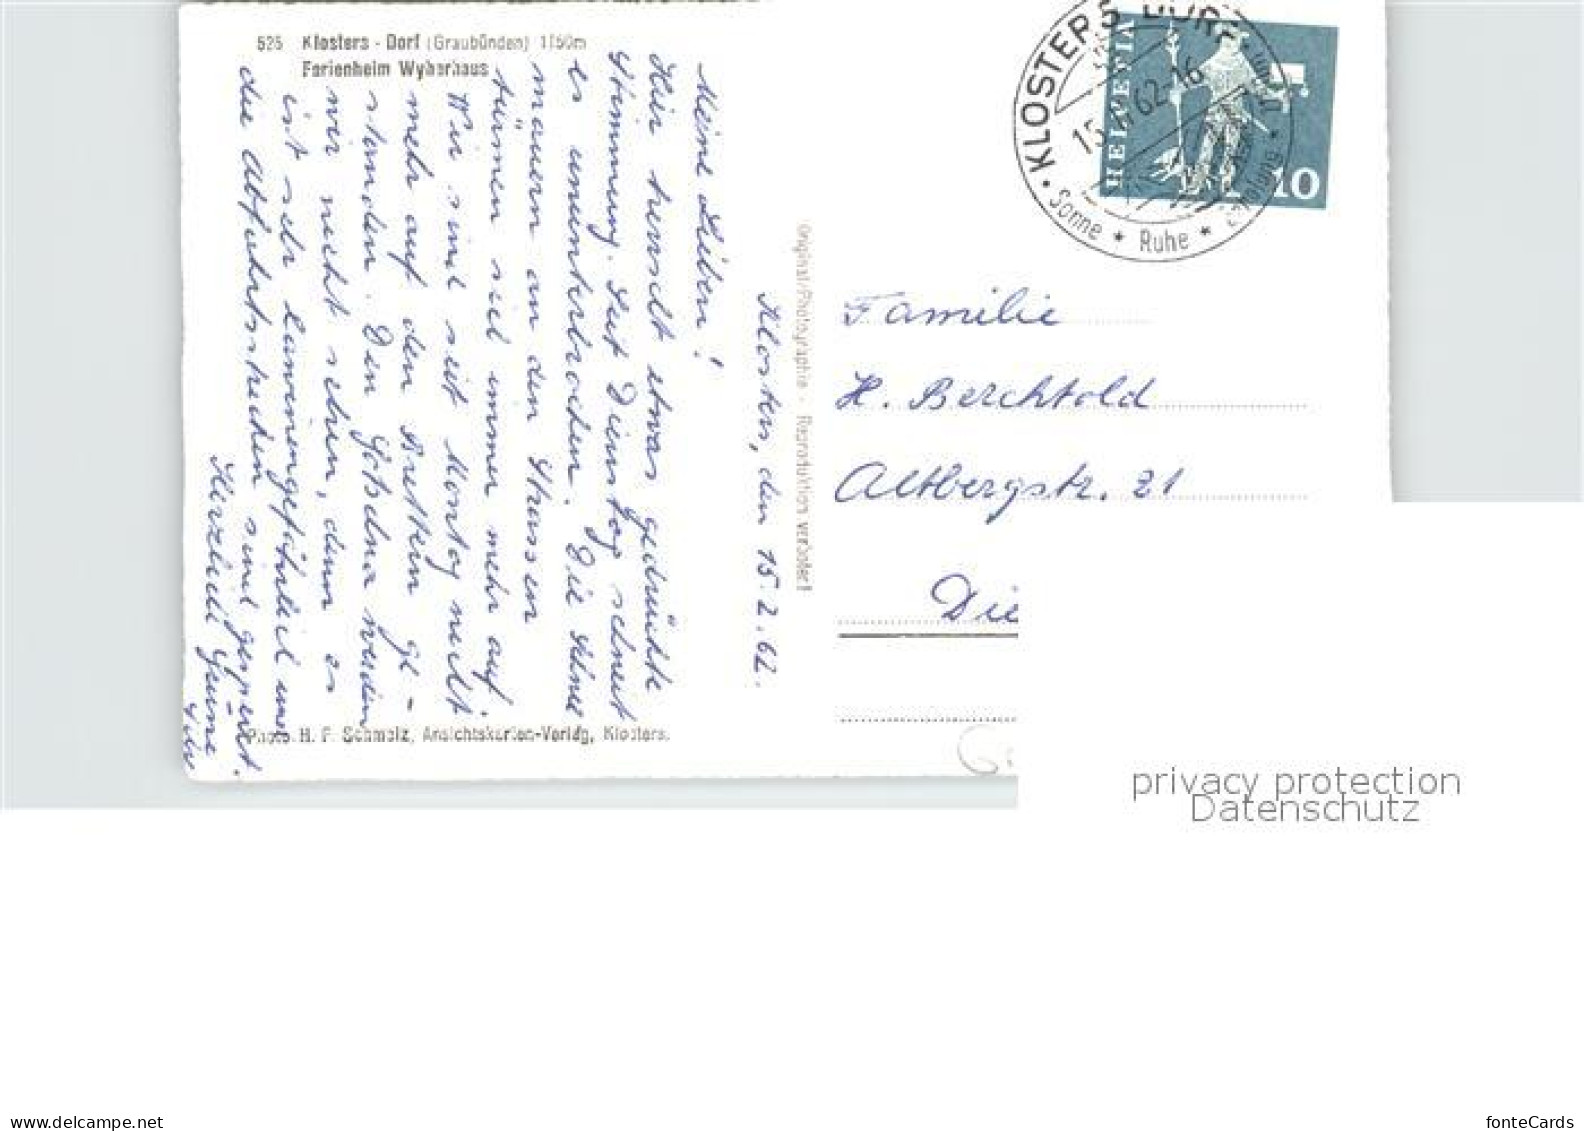 525 Klosters - Dorf (Graubünden) 1150m
Ferienheim Wyherhaus
Klosters, den 15.2.62.
Meine Lieben!
Hier herrscht etwas gedrückte
Stimmung. Seit Dienstag schneit
es ununterbrochen. Die Schnee
mauern an den Strassen
türmen sich immer mehr auf.
Wir sind seit Montag nicht
mehr auf den Brettern ge-
standen. Den Gotschna werden
wir nicht sehen, denn es
ist sehr lawinengefährlich und
die Abfahrtsstrecken sind gesperrt.
Herzliche Grüsse
Photo. H. F. Schmelz, Ansichtskarten-Verlag, Klosters.
Original-Photographie - Reproduktion verboten!
KLOSTERS DORF
15. 62-16
Sonne ★ Ruhe ★ Erholung ★
HELVETIA
10
Familie
H. Berchtold
Altbergstr. 21
Die
privacy protection
Datenschutz
www.delcampe.net
fonteCards